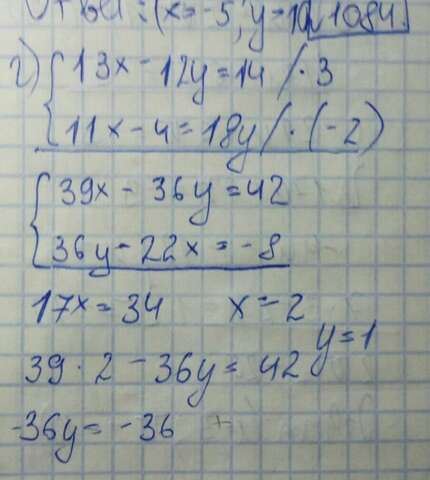 (x=-5; y=10) 1084.
г) { 13x - 12y = 14 / · 3
11x - 4 = 18y / · (-2)
{ 39x - 36y = 42
36y - 22x = -8
17x = 34 x = 2
y = 1
39 · 2 - 36y = 42
-36y = -36